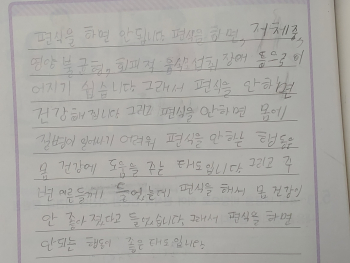 편식을 하면 안됩니다 편식을 하면, 저체중,
영양 불균형, 섭식장애 등으로 이
어지기 쉽습니다 그래서 편식을 안하면
건강해집니다 그리고 편식을 안하면 몸에
질병이 생기기 어려워 편식을 안하는 행동은
몸 건강에 도움을 주는 태도입니다 그리고 주
변 어른들께 들었는데 편식을 해서 몸 건강이
안 좋아 졌다고 들었습니다. 그래서 편식을 하면
안되는 행동 좋은 태도입니다